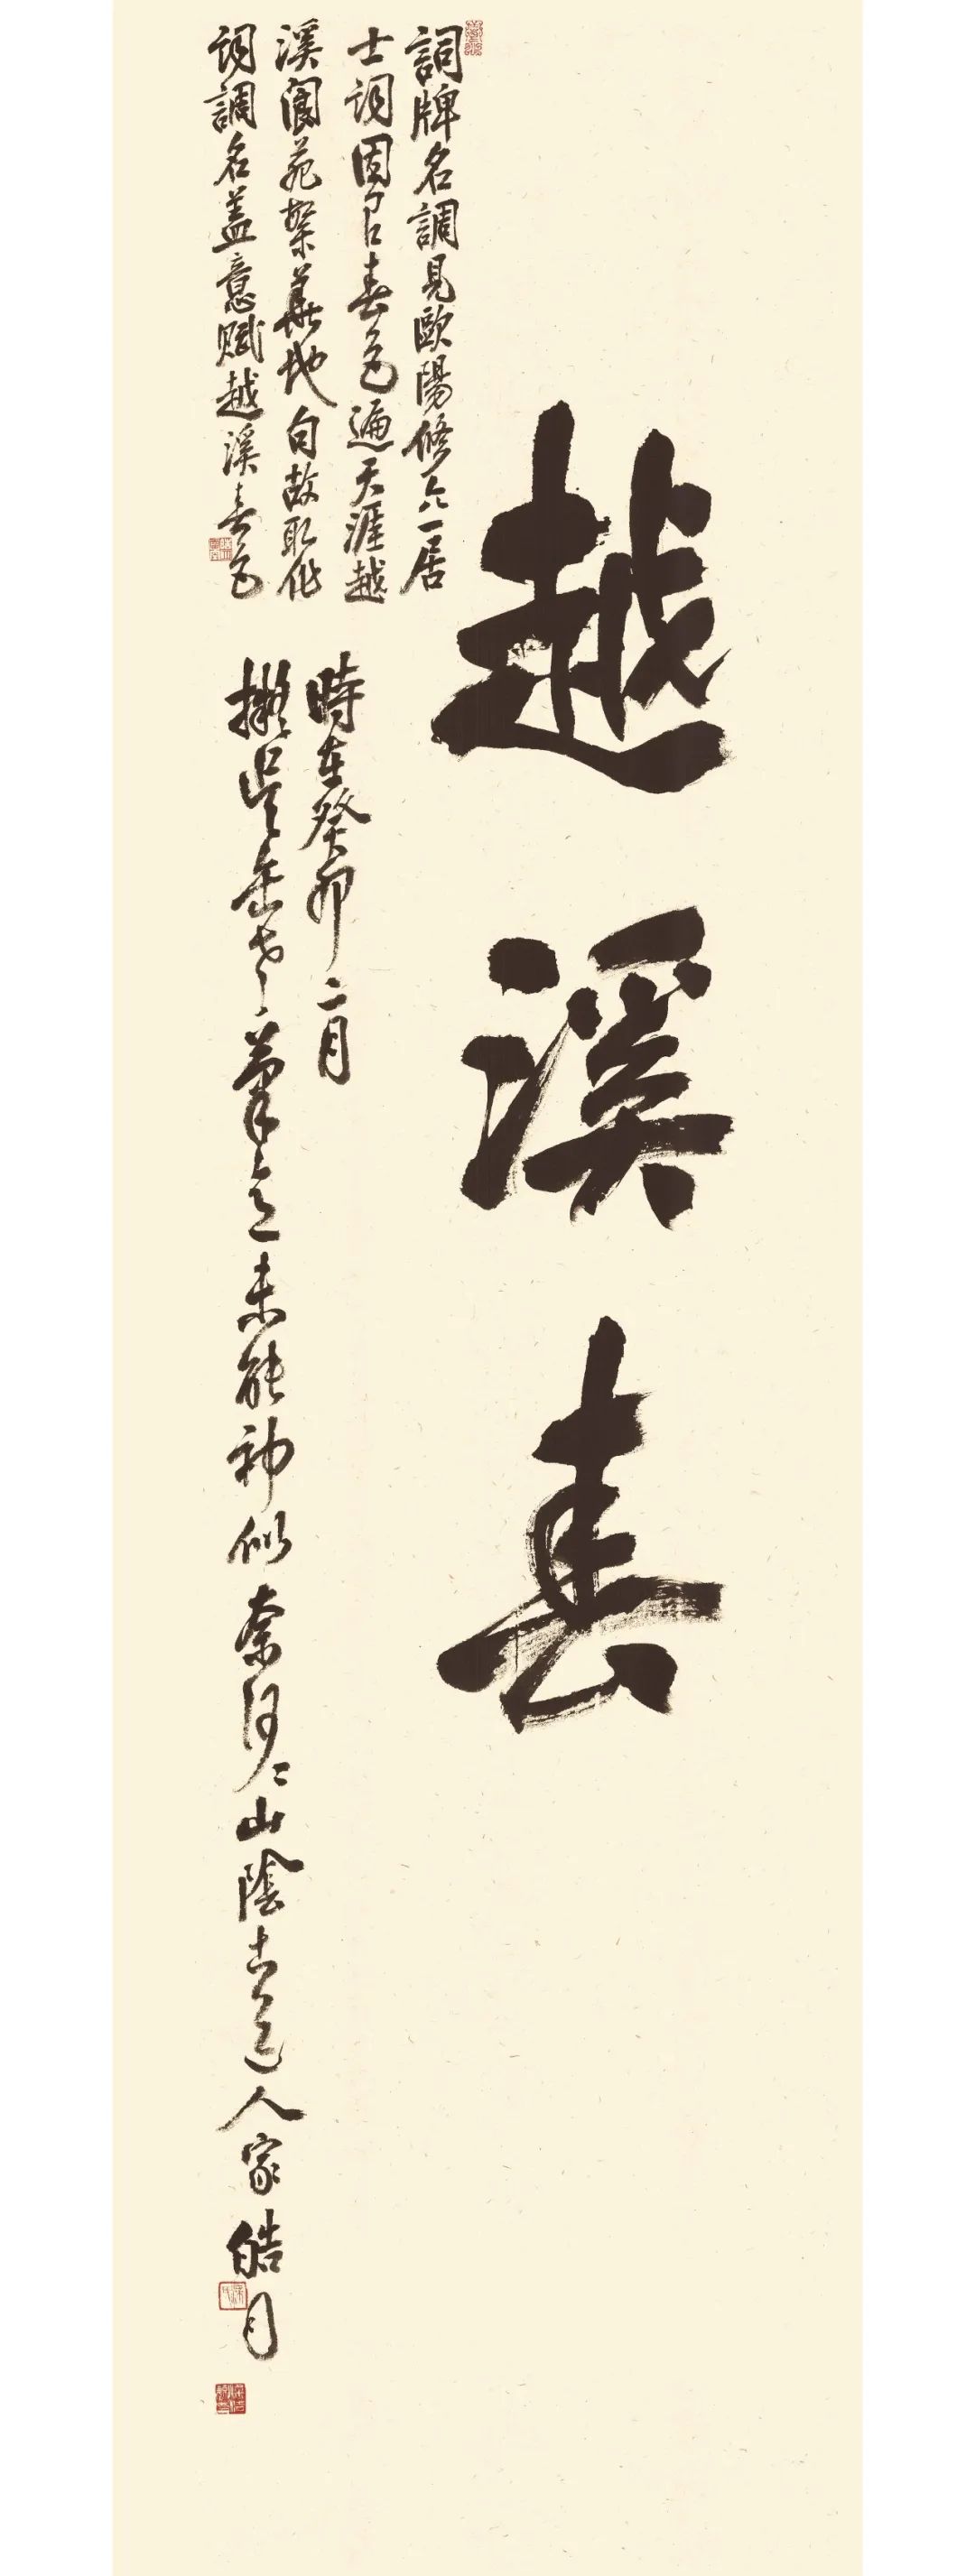 越溪春
詞牌名調見歐陽修六一居
士詞因春色遍天涯越
溪閬苑繁華地句故取作
詞調名蓋意賦越溪春色
時在癸卯二月
擬吳缶老筆意未能神似奈何〻山陰古道人家皓月